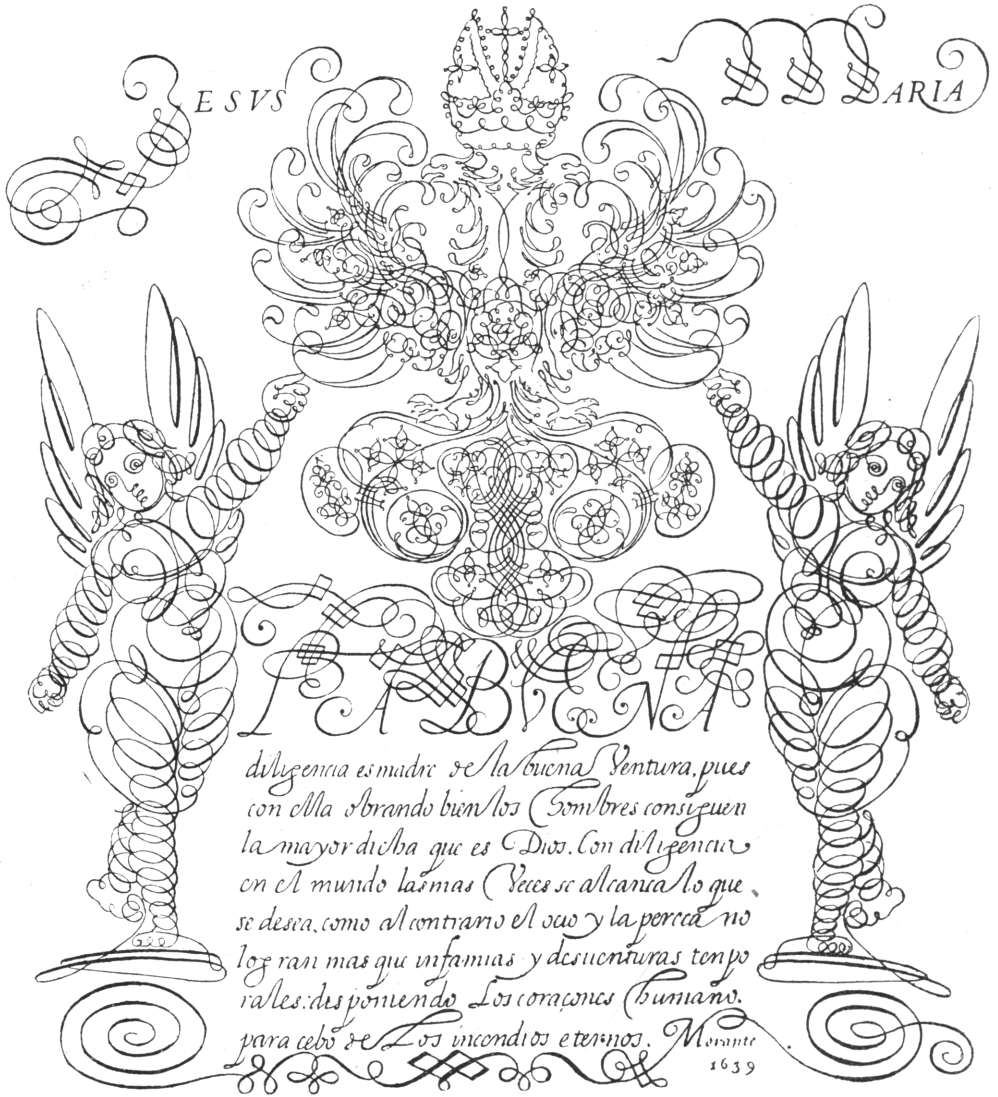 JESVS
MARIA
LA BVENA
diligencia es madre de la buena Ventura, pues
con ella obrando bien los hombres consiguen
la mayor dicha que es Dios. Con diligencia
en el mundo las mas Veces se alcanca lo que
se desea, como al contrario el ocio y la pereca no
logran mas que infamias y desuenturas tenpo
rales: disponiendo Los coraçones humano.
para cebo de Los incendios eternos. Morante
1639